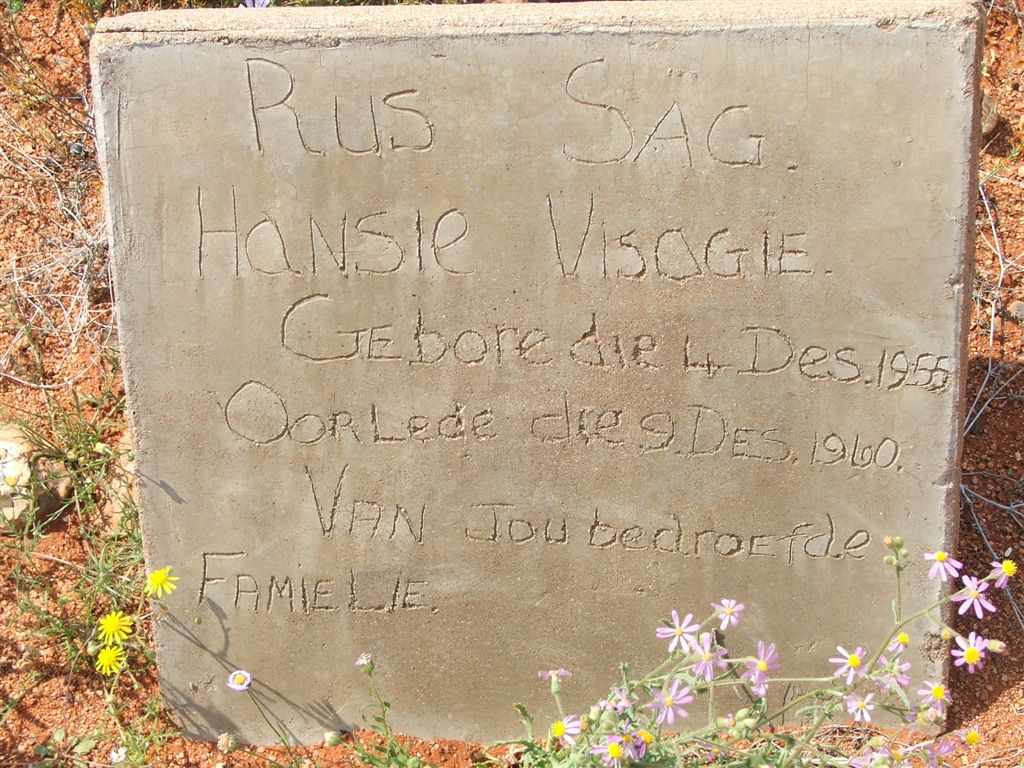 RUS SAG.
HANSIE VISAGIE.
GEbore die 4 Des. 1955
OORLede die 9 DES. 1960.
VAN Jou bedroefde
FAMIELIE.